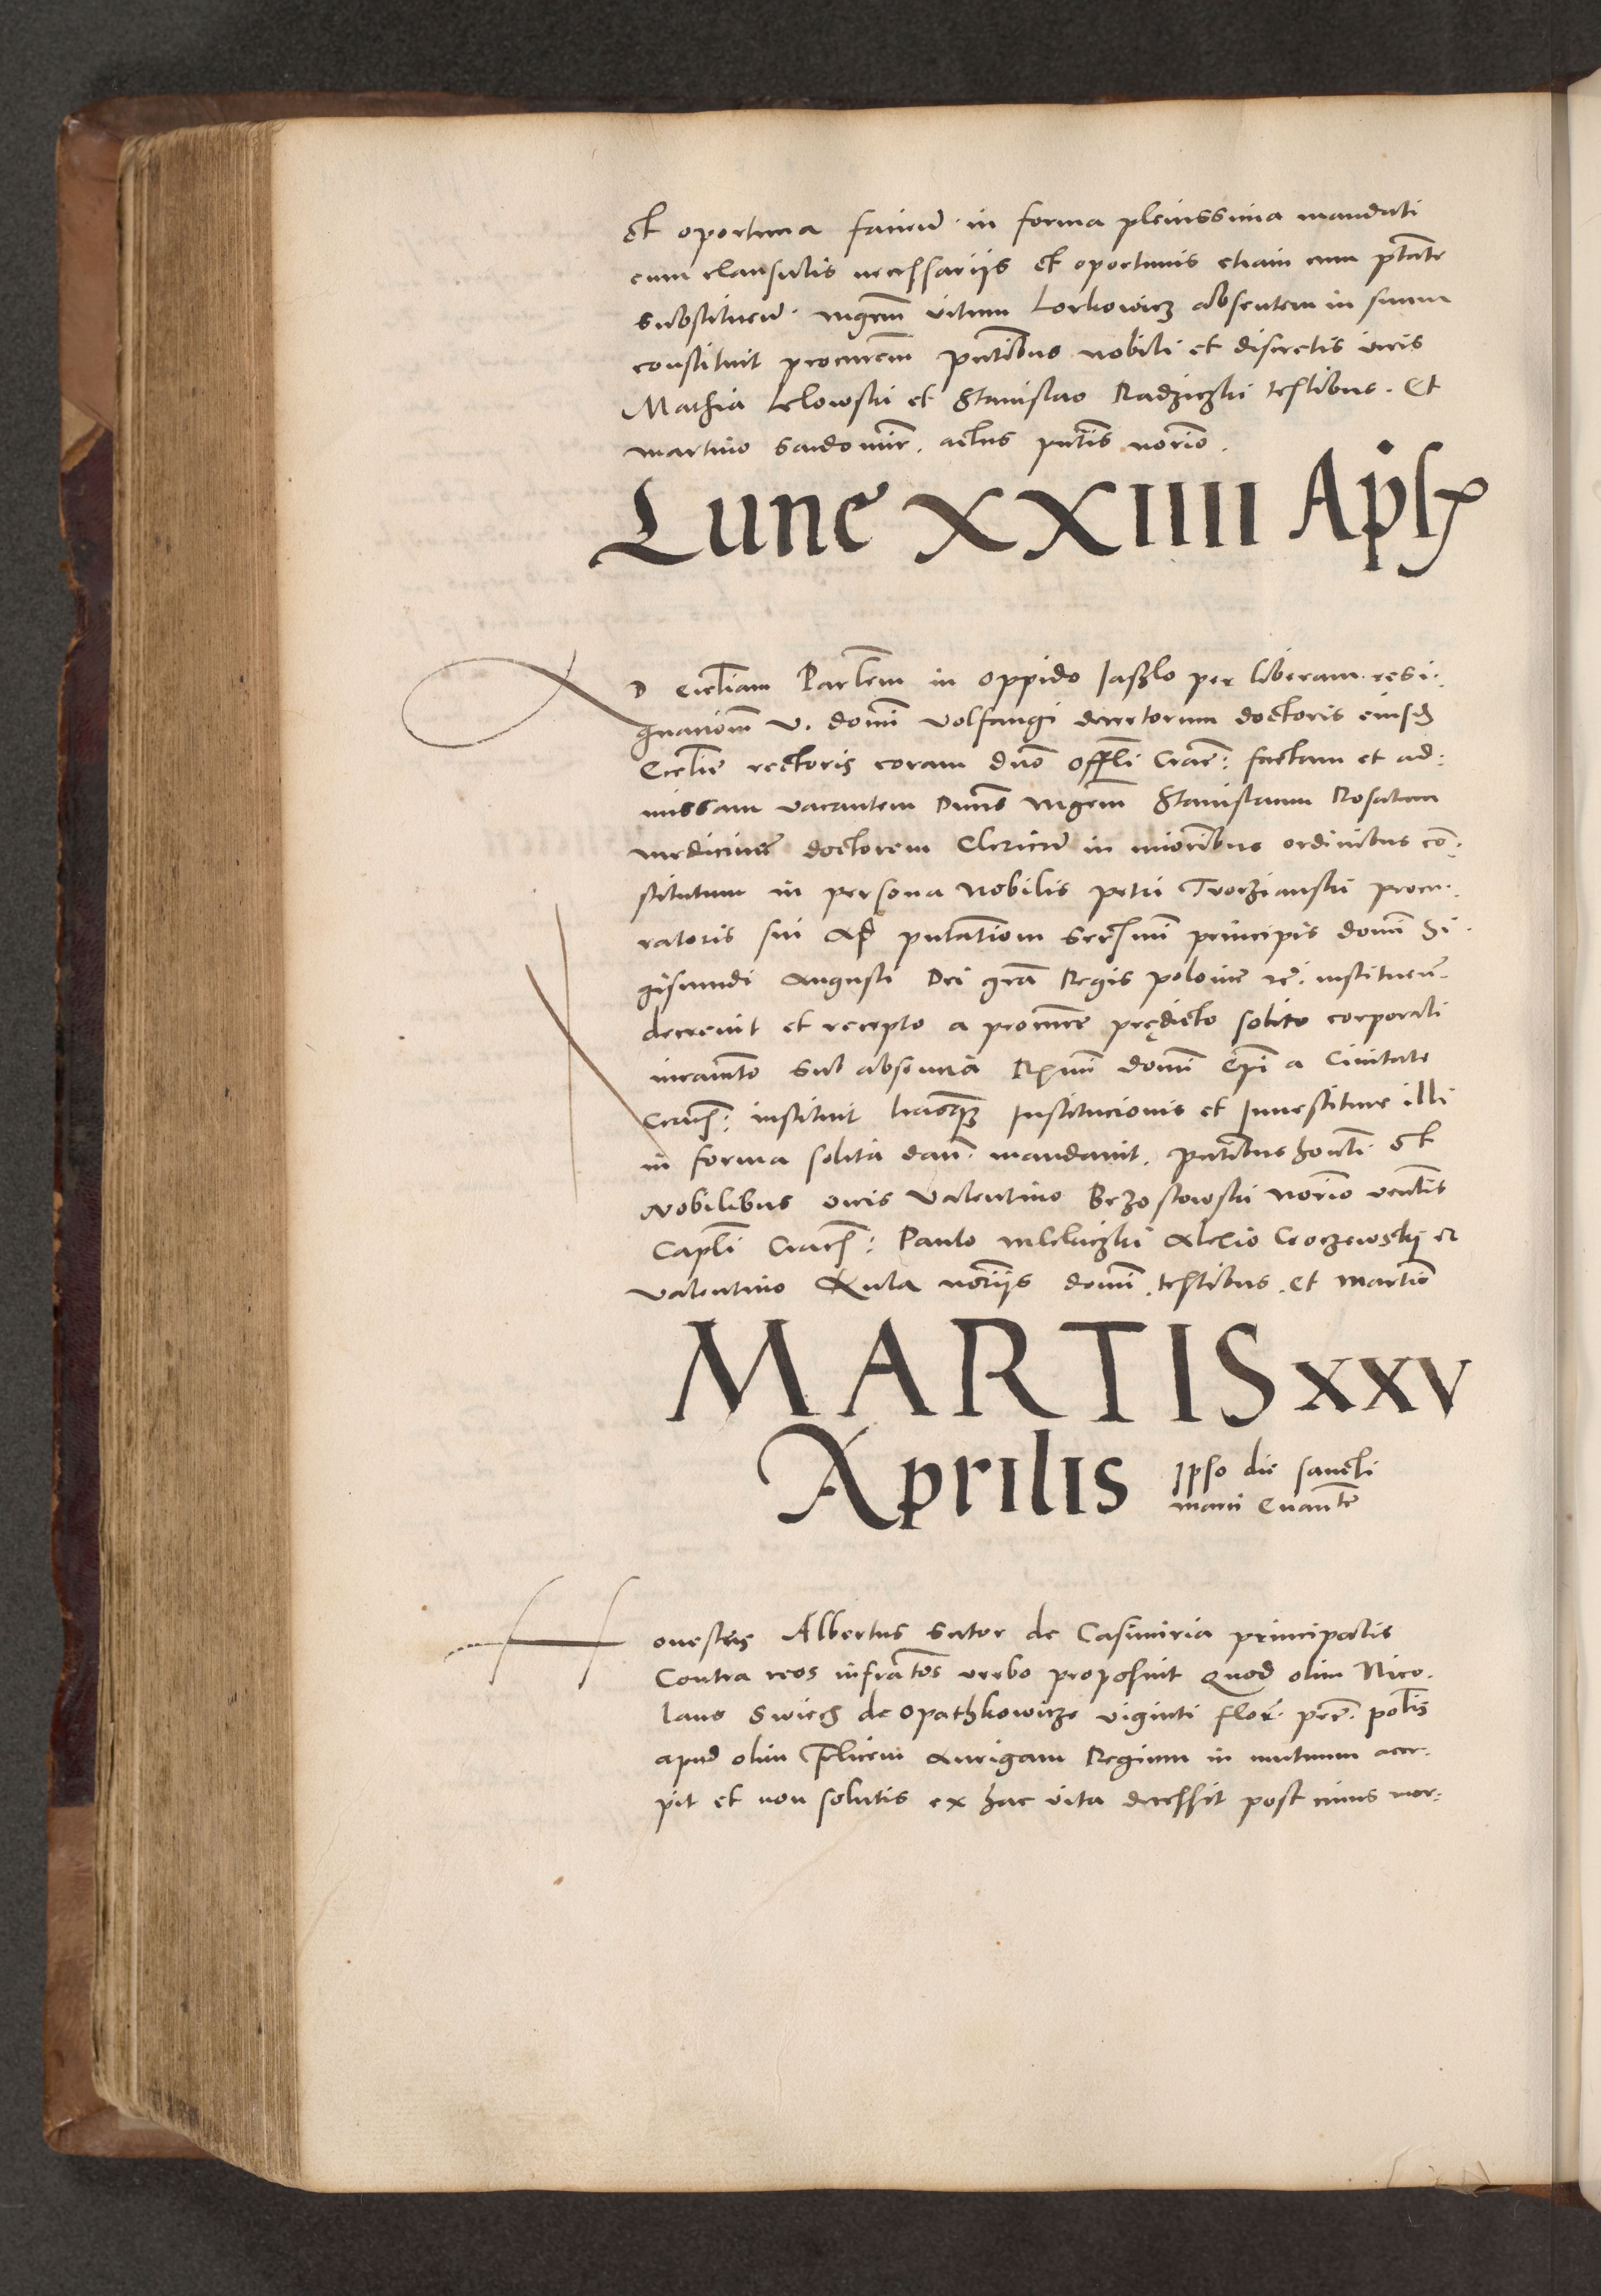 et oportuna faciend. in forma plenissima mandati
cum clausulis necessariis et oportunis etiam cum ptate
substituend. mgrm vitum Lorkowicz absentem in suum
constituit procurem pntibus nobili et discretis viris
Mathia Lelowski et Stanislao Radziczki testibus. Et
martino Sandomir. actus pntis norio.
Lune XXIIII Aplis
AD Eccliam Parlem in oppido Jaszlo per liberam resi:
gnacionem v. domi Volfangi decretorum doctoris eiusd
Ecclie rectoris coram dno offli Crac: factam et ad:
missam vacantem Dnus mgrm Stanislaum Rosatum
medicine doctorem Clericum in minoribus ordinibus con:
stitutum in persona Nobilis petri Tworzianski procu:
ratoris sui Ad pntationem Serenmi principis domi Si:
gismundi Augusti Dei gra Regis polonie rc. instituend.
decrevit et recepto a procure predicto solito corporali
iuramto sub absencia Rmi domi Epi a Civitate
Crac: instituit literasque Institucionis et Investiture illi
in forma solita dand. mandavit. pntibus honti. et
Nobilibus viris Valentino Brzostowski norio ventis
Capli Crac: Paulo Mleluczki Alexio Croczewskij et
Valentino Kula noriis domi. testibus. et martino
MARTIS XXV
Aprilis Ipso die sancti
marci Evante
Honestus Albertus Sutor de Casimiria principalis
Contra reos infratos verbo proposuit Quod olim Nico.
laus Swiech de Opathkowicze viginti flor. pec. polis
apud olim Felicem Aurigam Regium in mutuum acce.
pit et non solutis ex hac vita decessit post cuius mor: